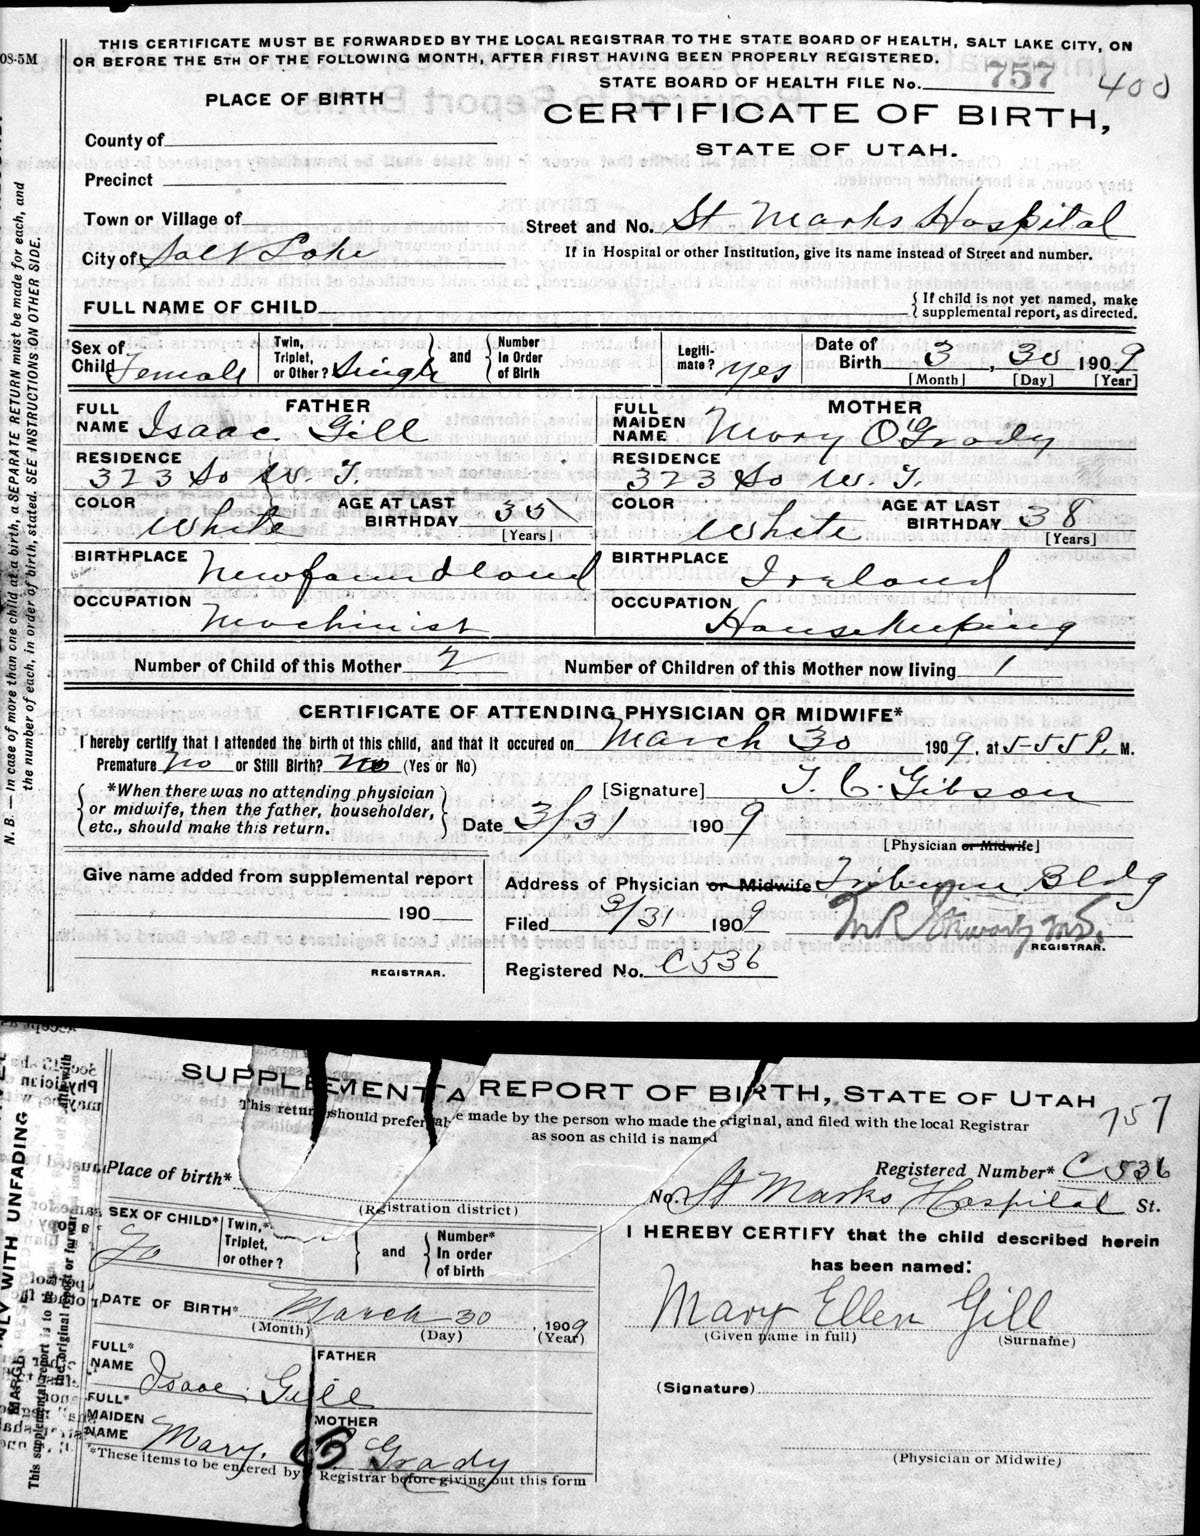 08-5M
THIS CERTIFICATE MUST BE FORWARDED BY THE LOCAL REGISTRAR TO THE STATE BOARD OF HEALTH, SALT LAKE CITY, ON
OR BEFORE THE 5TH OF THE FOLLOWING MONTH, AFTER FIRST HAVING BEEN PROPERLY REGISTERED.
STATE BOARD OF HEALTH FILE No. 757 400
PLACE OF BIRTH
CERTIFICATE OF BIRTH,
STATE OF UTAH.
County of
Precinct
Town or Village of
Street and No. St Marks Hospital
City of Salt Lake
If in Hospital or other Institution, give its name instead of Street and number.
FULL NAME OF CHILD
{ If child is not yet named, make
supplemental report, as directed.
Sex of Child Female
Twin, Triplet, or Other? Single } and { Number In Order of Birth
Legiti-mate? yes
Date of Birth 3, 30 1909
[Month] [Day] [Year]
FATHER
FULL NAME Isaac Gill
MOTHER
FULL MAIDEN NAME Mary O'Grady
RESIDENCE
323 So W. T.
RESIDENCE
323 So W. T.
COLOR White
AGE AT LAST BIRTHDAY 35
[Years]
COLOR White
AGE AT LAST BIRTHDAY 38
[Years]
BIRTHPLACE Newfoundland
BIRTHPLACE Ireland
OCCUPATION Machinist
OCCUPATION Housekeeping
Number of Child of this Mother 2
Number of Children of this Mother now living 1
CERTIFICATE OF ATTENDING PHYSICIAN OR MIDWIFE*
I hereby certify that I attended the birth of this child, and that it occured on March 30 1909, at 5-55 P. M.
Premature no or Still Birth? no (Yes or No)
{ *When there was no attending physician
or midwife, then the father, householder,
etc., should make this return. }
[Signature] T. C. Gibson
Date 3/31 1909
[Physician or Midwife]
Give name added from supplemental report
Address of Physician or Midwife Tribune Bldg
190
Filed 3/31 1909
REGISTRAR.
REGISTRAR.
Registered No. C536
N. B.—In case of more than one child at a birth, a SEPARATE RETURN must be made for each, and
the number of each, in order of birth, stated. SEE INSTRUCTIONS ON OTHER SIDE.
SUPPLEMENTA REPORT OF BIRTH, STATE OF UTAH
757
This return should preferab e made by the person who made the original, and filed with the local Registrar
as soon as child is named
Registered Number* C536
Place of birth*
No. St Marks Hospital St.
(Registration district)
SEX OF CHILD*
Twin,* Triplet, or other? } and { Number* In order of birth
I HEREBY CERTIFY that the child described herein
has been named:
DATE OF BIRTH* March 30, 1909
(Month) (Day) (Year)
Mary Ellen Gill
(Given name in full) (Surname)
FULL* NAME FATHER
Isaac Gill
(Signature)
FULL* MAIDEN NAME MOTHER
Mary. O Grady
(Physician or Midwife)
*These items to be entered by Registrar before giving out this form